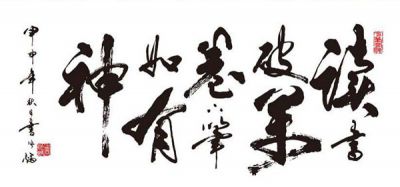 读書
破萬
卷下筆
如有
神
甲申年秋月書